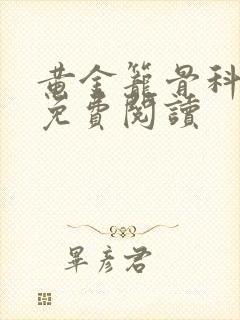 黄金籠骨科
免費閱讀
畢彥君